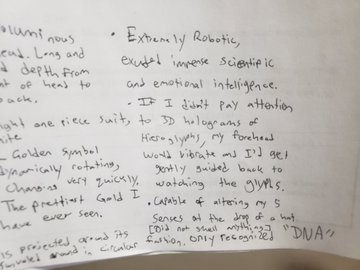 oluminous
ead. Long and
d depth from
nt of head to
ack.
ight one piece suit,
ite
Golden symbol
dynamically rotating,
Changing very quickly.
The prettiest Gold I
have ever seen.
is projected around its
around in circular
• Extremely Robotic,
exuded immense Scientific
and emotional intelligence.
• IF I didn't pay attention
to 3D holograms of
Hieroglyphs, my forehead
would vibrate and I'd get
gently guided back to
watching the glyphs.
• Capable of altering my 5
Senses at the drop of a hat.
[Did not smell anything]
fashion. only recognized "DNA"